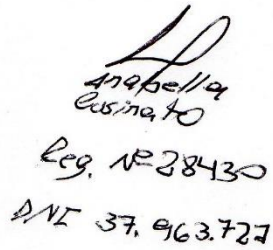 Anabella
Cusinato
Reg. Nº 28430
DNI 37.963.727